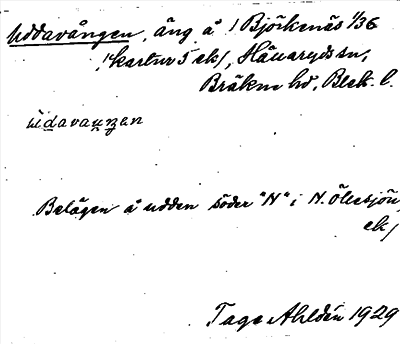 Uddavången, äng å 1 Björkenäs 1/36
(kartur 5 ek), Hällaryds sn,
Bräkne hd, Blek. l.
ùdavauŋən
Belägen å udden söder "N" i N. Ölesjön,
ek)
Tage Ahldén 1929